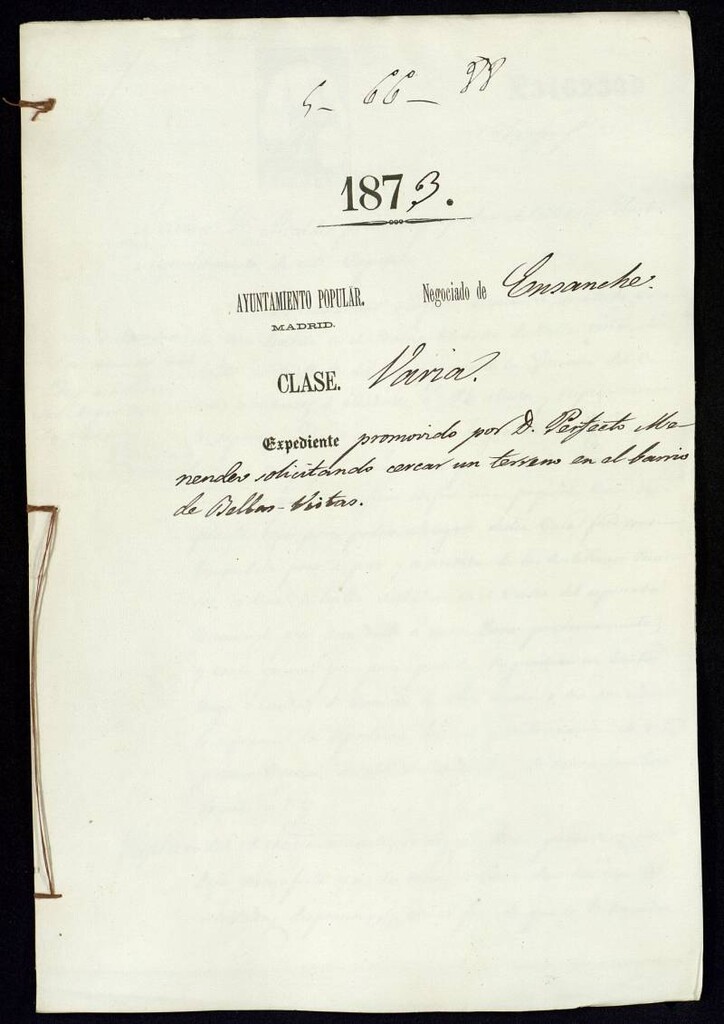 5-66-88
1873.
AYUNTAMIENTO POPULAR. Negociado de Ensanche.
MADRID.
CLASE. Varia.
Expediente promovido por D. Perfecto Me-
nendez solicitando cercar un terreno en el barrio
de Bellas-Vistas.